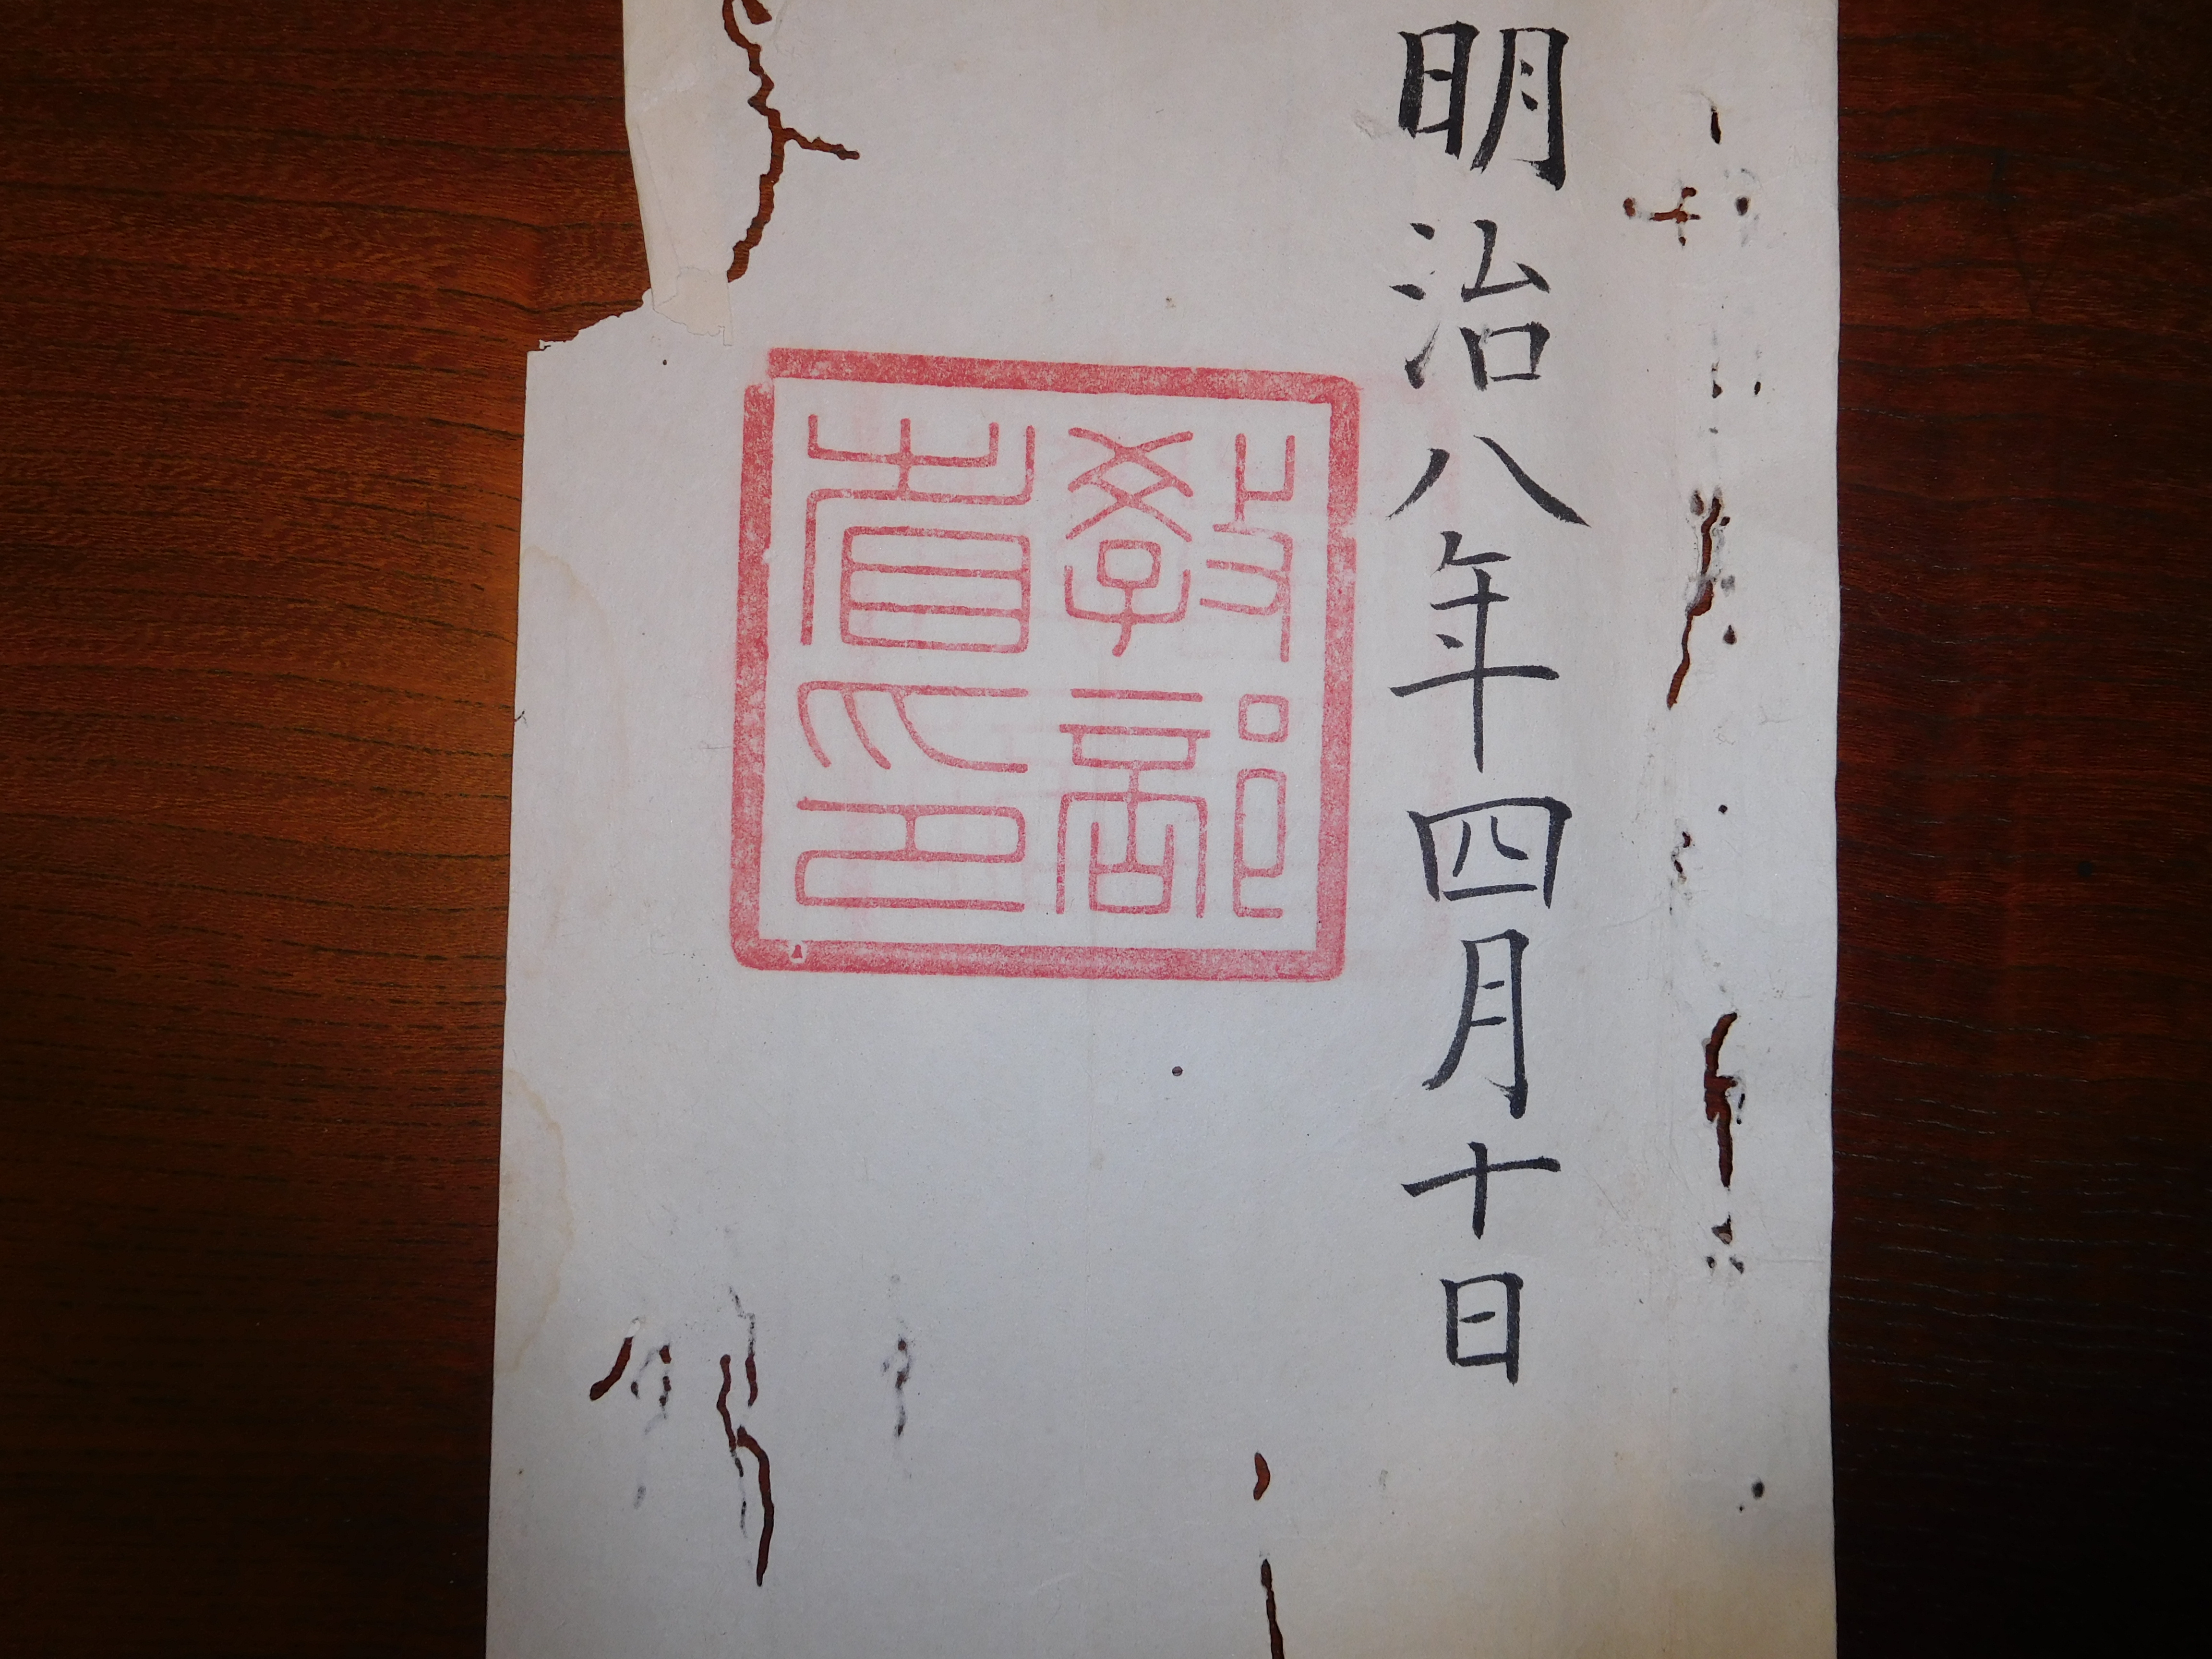 明治八年四月十日
教部
省印